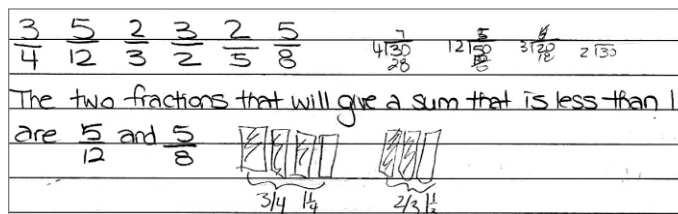 3/4 5/12 2/3 3/2 2/5 5/8
4)30 7 28 12)50 3)20 18 2)30
The two fractions that will give a sum that is less than 1
are 5/12 and 5/8
3/4 1 1/4 2/3